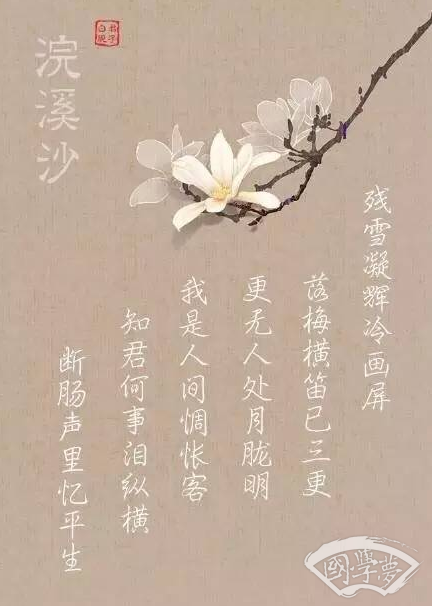 浣溪沙
残雪凝辉冷画屏
落梅横笛已三更
更无人处月胧明
我是人间惆怅客
知君何事泪纵横
断肠声里忆平生
國學夢